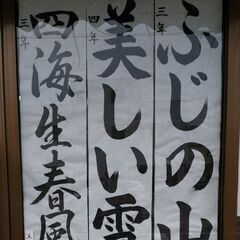 三年
ふじの山
四年
美しい雪
三年
四海生春風